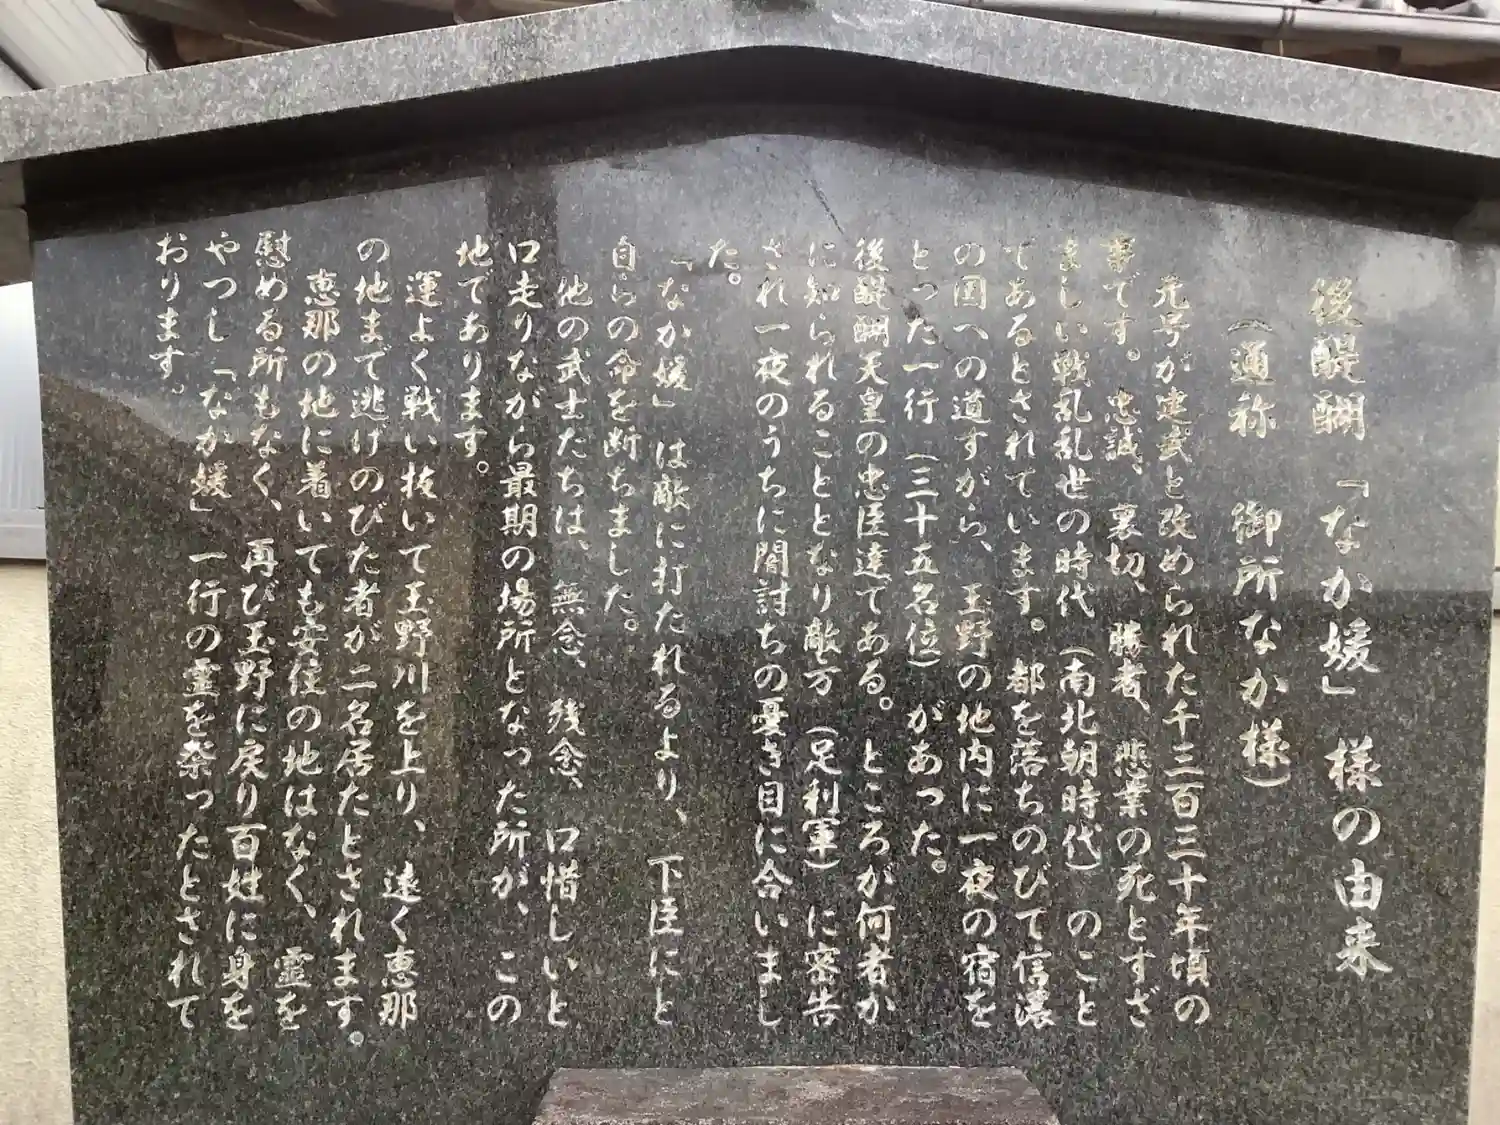 後醍醐「なか媛」様の由来
(通称 御所なか様)
元号が建武と改められた千三百三十年頃の
事です。忠誠、裏切、勝者、悲業の死とすざ
ましい戦乱乱世の時代(南北朝時代)のこと
であるとされています。都を落ちのびて信濃
の国への道すがら、玉野の地内に一夜の宿を
とった一行(三十五名位)があった。
後醍醐天皇の忠臣達である。ところが何者か
に知られることとなり敵方(足利軍)に密告
され一夜のうちに闇討ちの憂き目に合いまし
た。
「なか媛」は敵に打たれるより、下臣にと
自らの命を断ちました。
他の武士たちは、無念、残念、口惜しいと
口走りながら最期の場所となった所が、この
地であります。
運よく戦い抜いて玉野川を上り、遠く恵那
の地まで逃げのびた者が二名居たとされます。
恵那の地に着いても安住の地はなく、霊を
慰める所もなく、再び玉野に戻り百姓に身を
やつし「なか媛」一行の霊を祭ったとされて
おります。